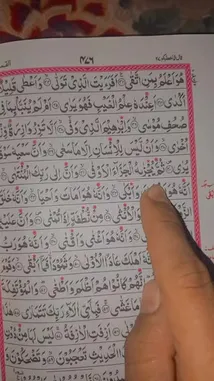 ٤٧٦
هُوَ اَعْلَمُ بِمَنِ اتَّقٰى اَفَرَءَيْتَ الَّذِىْ تَوَلّٰى وَاَعْطٰى قَلِيْلًا
اَكْدٰى اَعِنْدَهٗ عِلْمُ الْغَيْبِ فَهُوَ يَرٰى اَمْ لَمْ يُنَبَّاْ بِمَا فِىْ
صُحُفِ مُوْسٰى وَاِبْرٰهِيْمَ الَّذِىْ وَفّٰى اَلَّا تَزِرُ وَازِرَةٌ وِّزْرَ
اُخْرٰى وَاَنْ لَّيْسَ لِلْاِنْسَانِ اِلَّا مَا سَعٰى وَاَنَّ سَعْيَهٗ سَوْفَ
يُرٰى ثُمَّ يُجْزٰىهُ الْجَزَآءَ الْاَوْفٰى وَاَنَّ اِلٰى رَبِّكَ الْمُنْتَهٰى
وَاَبْكٰى وَاَنَّهٗ هُوَ اَمَاتَ وَاَحْيَا
مِنْ نُّطْفَةٍ اِذَا تُمْنٰى وَاَنَّ عَلَيْهِ
وَاَنَّهٗ هُوَ اَغْنٰى وَاَقْنٰى وَاَنَّهٗ هُوَ رَبُّ
اَهْلَكَ عَادًا الْاُوْلٰى وَثَمُوْدَا۟ فَمَآ اَبْقٰى وَقَوْمَ
كَانُوْا هُمْ اَظْلَمَ وَاَطْغٰى وَالْمُؤْتَفِكَةَ
مَا غَشّٰى فَبِاَىِّ اٰلَآءِ رَبِّكَ تَتَمَارٰى هٰذَا
اَزِفَتِ الْاٰزِفَةُ لَيْسَ لَهَا مِنْ دُوْنِ
الْحَدِيْثِ تَعْجَبُوْنَ وَتَضْحَكُوْنَ وَ